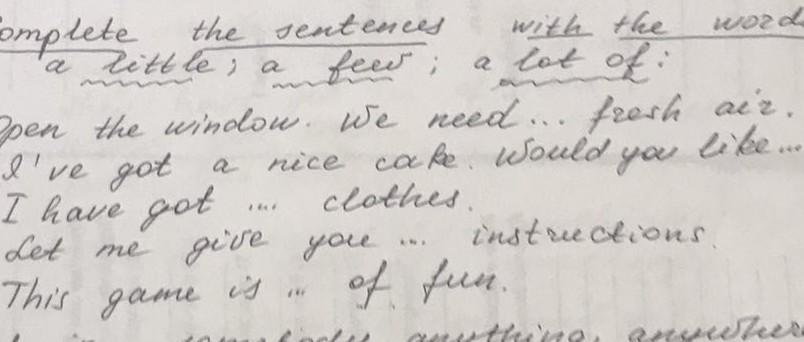 omplete the sentences with the word
a little; a few; a lot of:
Open the window. We need... fresh air.
I've got a nice cake. Would you like...
I have got ... clothes.
Let me give you ... instructions.
This game is ... of fun.
somebody anything, anywher